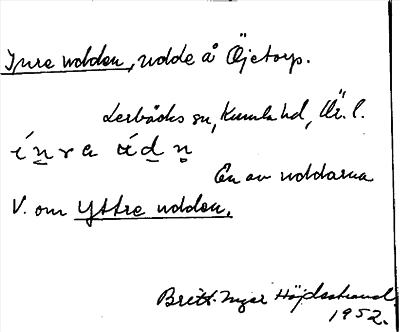 Inre udden, udde å Öjetorp.
Lerbäcks sn, Kumla hd, Ör. l.
í n̠ r a ú d̠ n̥
En av uddarna
V. om Yttre udden.
Britt Inger Höjdestrand
1952.